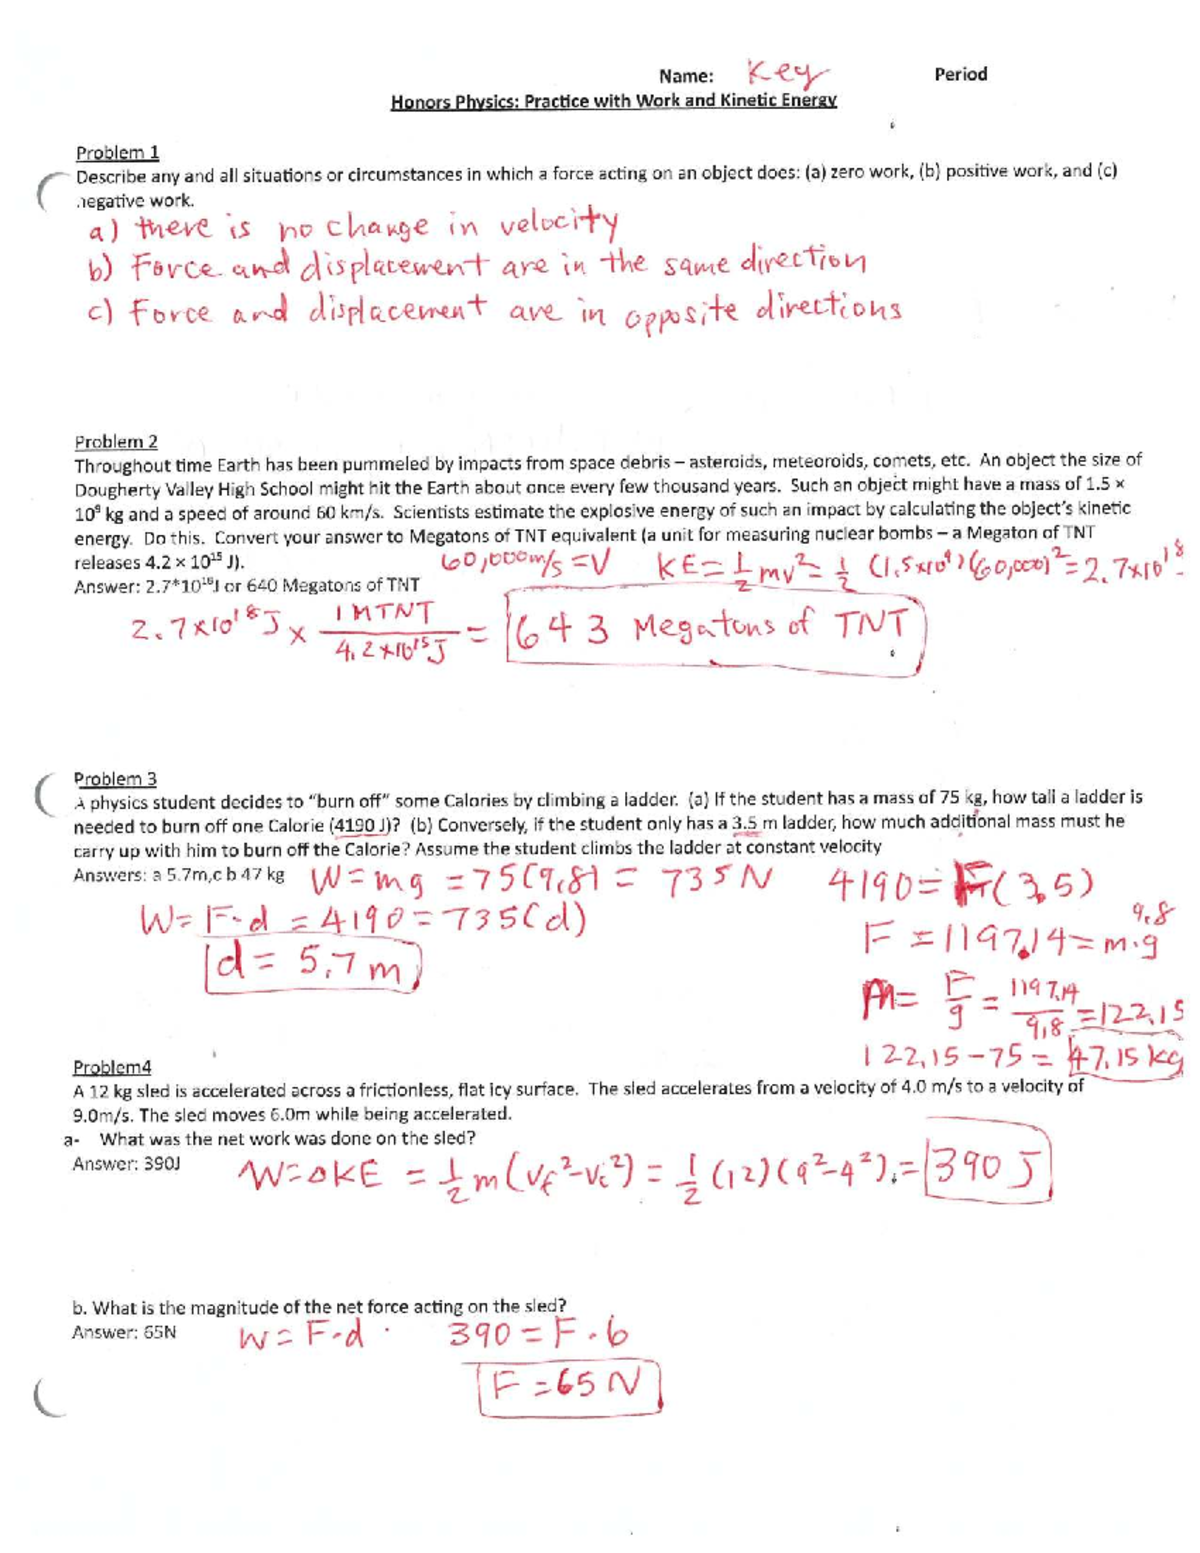 Name: Key Period
Honors Physics: Practice with Work and Kinetic Energy
Problem 1
Describe any and all situations or circumstances in which a force acting on an object does: (a) zero work, (b) positive work, and (c)
negative work.
a) there is no change in velocity
b) Force and displacement are in the same direction
c) Force and displacement are in opposite directions
Problem 2
Throughout time Earth has been pummeled by impacts from space debris – asteroids, meteoroids, comets, etc. An object the size of
Dougherty Valley High School might hit the Earth about once every few thousand years. Such an object might have a mass of 1.5 ×
10⁹ kg and a speed of around 60 km/s. Scientists estimate the explosive energy of such an impact by calculating the object's kinetic
energy. Do this. Convert your answer to Megatons of TNT equivalent (a unit for measuring nuclear bombs – a Megaton of TNT
releases 4.2 × 10¹⁵ J).
60,000m/s = V KE = 1/2 mv² = 1/2 (1.5x10⁹)(60,000)² = 2.7x10¹⁸
Answer: 2.7*10¹⁸J or 640 Megatons of TNT
2.7x10¹⁸ J x 1 MTNT / 4.2x10¹⁵ J = 643 Megatons of TNT
Problem 3
A physics student decides to "burn off" some Calories by climbing a ladder. (a) If the student has a mass of 75 kg, how tall a ladder is
needed to burn off one Calorie (4190 J)? (b) Conversely, if the student only has a 3.5 m ladder, how much additional mass must he
carry up with him to burn off the Calorie? Assume the student climbs the ladder at constant velocity
Answers: a 5.7m,c b 47 kg W = mg = 75(9.8) = 735N 4190 = F(3.5)
W = F·d = 4190 = 735(d)
F = 1197.14 = m·g 9.8
d = 5.7 m
m = F/g = 1197.14/9.8 = 122.15
122.15 – 75 = 47.15 kg
Problem4
A 12 kg sled is accelerated across a frictionless, flat icy surface. The sled accelerates from a velocity of 4.0 m/s to a velocity of
9.0m/s. The sled moves 6.0m while being accelerated.
a- What was the net work was done on the sled?
Answer: 390J W = ΔKE = 1/2 m(Vf² – Vi²) = 1/2 (12)(9² – 4²) = 390 J
b. What is the magnitude of the net force acting on the sled?
Answer: 65N W = F·d 390 = F·6
F = 65 N